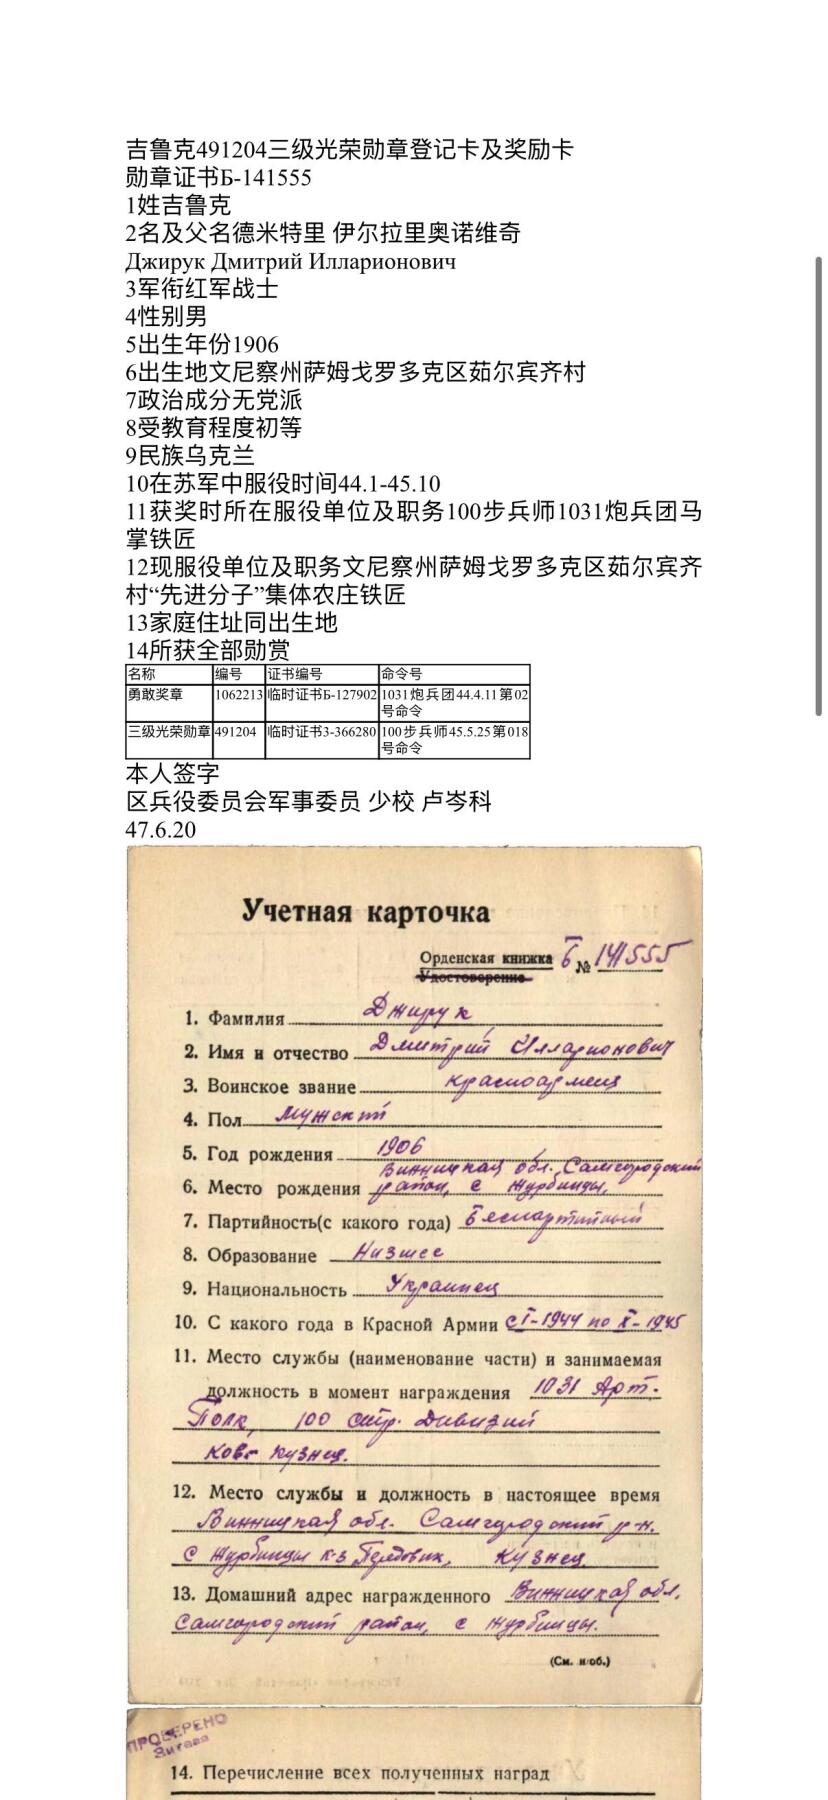 吉鲁克491204三级光荣勋章登记卡及奖励卡
勋章证书Б-141555
1姓吉鲁克
2名及父名德米特里 伊尔拉里奥诺维奇
Джирук Дмитрий Илларионович
3军衔红军战士
4性别男
5出生年份1906
6出生地文尼察州萨姆戈罗多克区茹尔宾齐村
7政治成分无党派
8受教育程度初等
9民族乌克兰
10在苏军中服役时间44.1-45.10
11获奖时所在服役单位及职务100步兵师1031炮兵团马
掌铁匠
12现服役单位及职务文尼察州萨姆戈罗多克区茹尔宾齐
村“先进分子”集体农庄铁匠
13家庭住址同出生地
14所获全部勋赏
名称 编号 证书编号 命令号
勇敢奖章 1062213 临时证书Б-127902 1031炮兵团44.4.11第02
号命令
三级光荣勋章 491204 临时证书3-366280 100步兵师45.5.25第018
号命令
本人签字
区兵役委员会军事委员 少校 卢岑科
47.6.20
Учетная карточка
Орденская книжка Б № 141555
Удостоверение
1. Фамилия Джирук
2. Имя и отчество Дмитрий Илларионович
3. Воинское звание красноармеец
4. Пол Мужской
5. Год рождения 1906
Винницкая обл. Самгородский
6. Место рождения район, с Журбинцы.
7. Партийность(с какого года) Беспартийный
8. Образование Низшее
9. Национальность Украинец
10. С какого года в Красной Армии с I-1944 по X-1945
11. Место службы (наименование части) и занимаемая
должность в момент награждения 1031 Арт.
Полк, 100 стр. Дивизии
Ков. кузнец.
12. Место службы и должность в настоящее время
Винницкая обл. Самгородский р-н.
с Журбинцы к-з Передовик, кузнец
13. Домашний адрес награжденного Винницкая обл.
Самгородский район, с Журбинцы.
(См. н/об.)
ПРОВЕРЕНО
14. Перечисление всех полученных наград